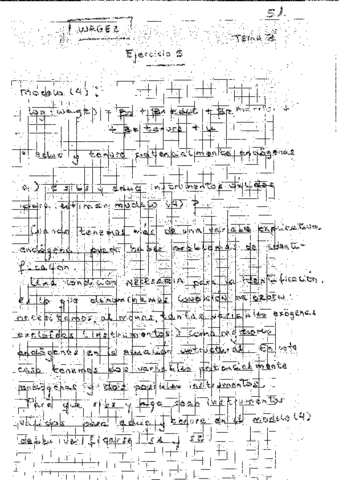 51.
WAGE2
TEMA
Ejercicio 5
Modelo (4):
log (wage) = β0 + β1 educ +
tenure + u
* educ y tenure potencialmente endógenas
a.) ¿ sibs y educ instrumentos válidos
para estimar modelo (4)?
Cuando tenemos más de una variable explicativa
endógena puede haber problemas de identi-
ficación.
Una condición NECESARIA para la identificación,
es lo que denominamos CONDICIÓN DE ORDEN:
necesitamos, al menos, tantas variables exógenas
excluidas (instrumentos) como
endógenas en la ecuación estructural. En este
caso tenemos dos variables potencialmente
endógenas y dos posibles instrumentos.
Para que sibs y sean instrumentos
válidos para educ y tenure en el modelo (4)
debe verificarse y